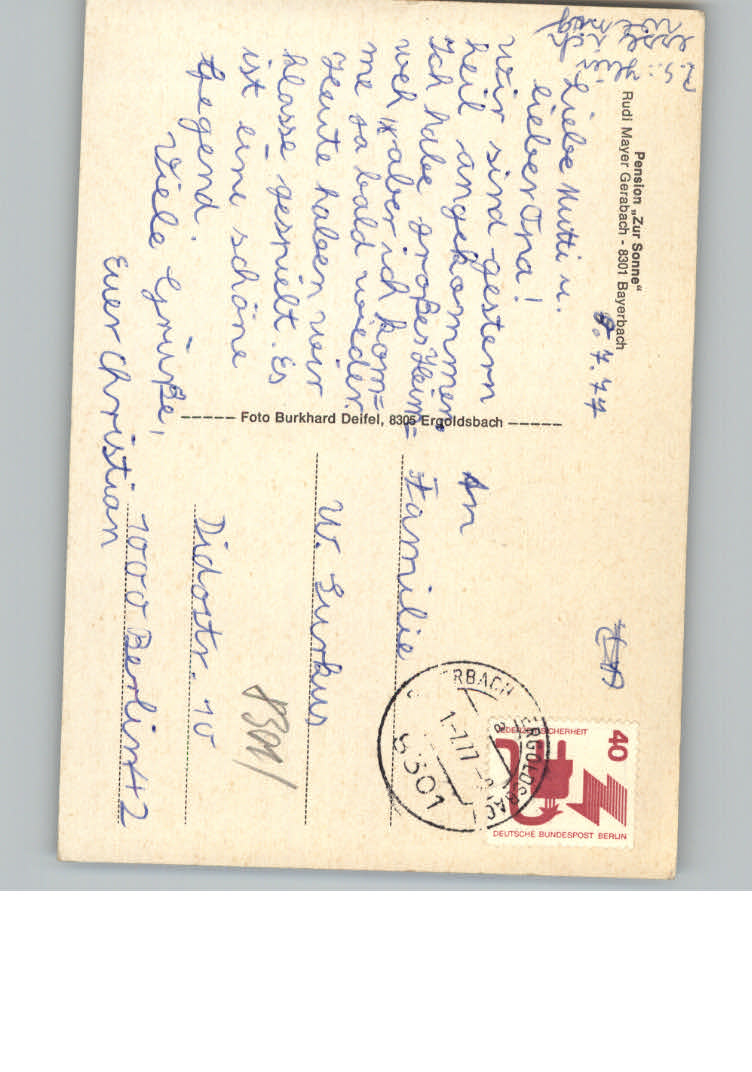 Pension „Zur Sonne“
Rudi Mayer Gerabach - 8301 Bayerbach
8.7.77
Liebe Mutti u.
lieber Opa!
Wir sind gestern
heil angekommen
Ich habe großes Heim=
weh aber ich kom=
me ja bald wieder
Heute haben wir
klasse gespielt. Es
ist eine schöne
Gegend.
Viele Grüße,
Euer Christian
P.S.: Hier ich
esse
----- Foto Burkhard Deifel, 8305 Ergoldsbach -----
An
Familie
W. Surkus
Didostr. 10
1000 Berlin 42
8301
ERGOLDSBAC
8301
40
JEDERZEIT SICHERHEIT
DEUTSCHE BUNDESPOST BERLIN